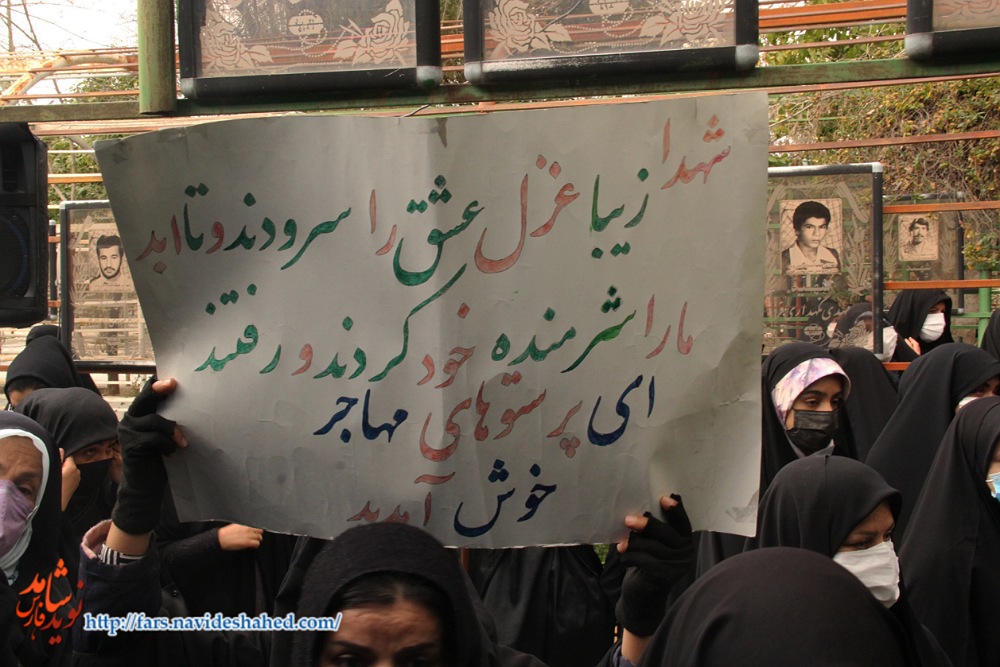 شهدا
زیبا غزل عشق را سرودند و تا ابد
ما را شرمنده خود کردند و رفتند
ای پرستوهای مهاجر
خوش آمدید
نوید شاهد
فارس
http://fars.navideshahed.com/